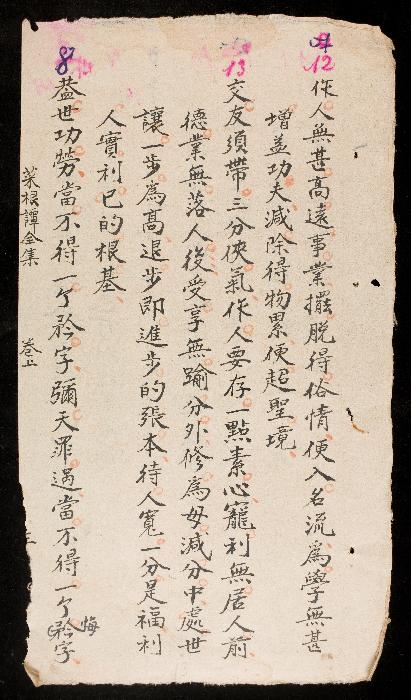 12
作人無甚高遠事業擺脫得俗情便入名流爲學無甚
增益功夫減除得物累便超聖境
13
交友須帶三分俠氣作人要存一點素心寵利無居人前
德業無落人後受享無踰分外修爲毋減分中處世
讓一步爲高退步即進步的張本待人寬一分是福利
人實利己的根基
8
蓋世功勞當不得一个矜字彌天罪過當不得一个矜字
悔
菜根譚全集 卷上 三